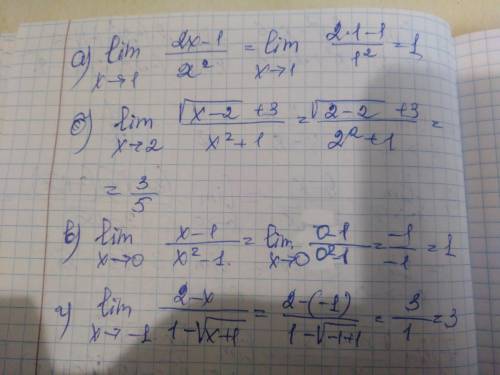 а) lim x→1 (2x-1)/x² = lim x→1 (2·1-1)/1² = 1
б) lim x→2 (√(x-2) +3)/(x²+1) = (√(2-2) +3)/(2²+1) =
= 3/5
в) lim x→0 (x-1)/(x²-1) = lim x→0 (0-1)/(0²-1) = -1/-1 = 1
г) lim x→-1 (2-x)/(1-√(x+1)) = (2-(-1))/(1-√(-1+1)) = 3/1 = 3